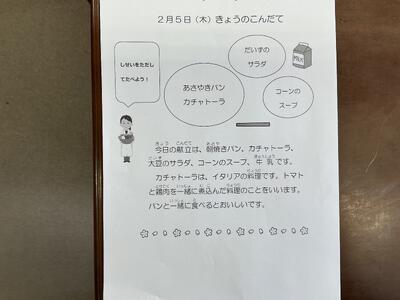 ２月５日（木）きょうのこんだて
しせいをただし
てたべよう！
だいずの
サラダ
MILK
あさやきパン
カチャトーラ
コーンの
スープ
今日の献立は、朝焼きパン、カチャトーラ、
大豆のサラダ、コーンのスープ、牛乳です。
カチャトーラは、イタリアの料理です。トマト
と鶏肉を一緒に煮込んだ料理のことをいいます。
パンと一緒に食べるとおいしいです。